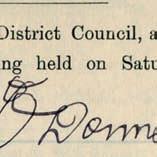 District Council, a
ing held on Satu
Donne